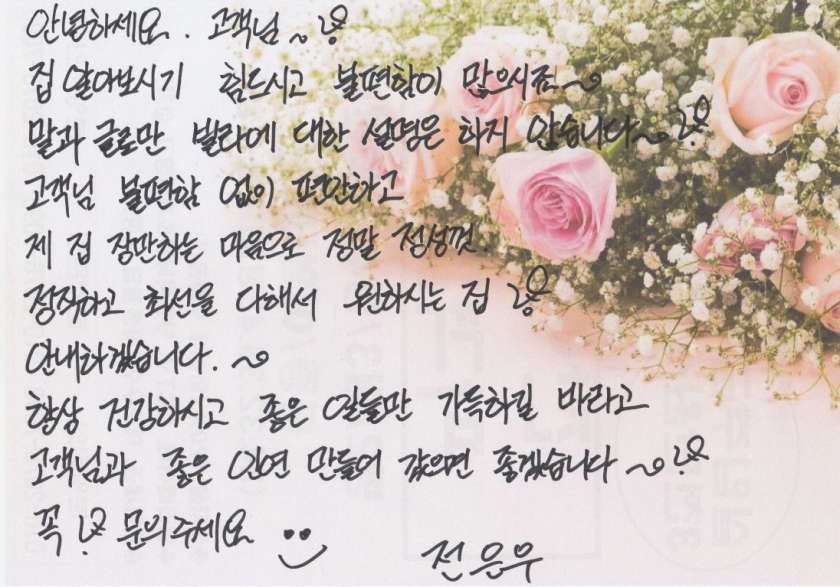 안녕하세요. 고객님~
집 알아보시기 힘드시고 불편함이 많으시죠~
말과 글로만 빌라에 대한 설명은 하지 않습니다~
고객님 불편함 없이 편안하고
제 집 장만하는 마음으로 정말 정성껏.
정직하고 최선을 다해서 원하시는 집
안내하겠습니다. ~
항상 건강하시고 좋은 일들만 가득하길 바라고
고객님과 좋은 인연 만들어 갔으면 좋겠습니다~
꼭 문의주세요
전은우